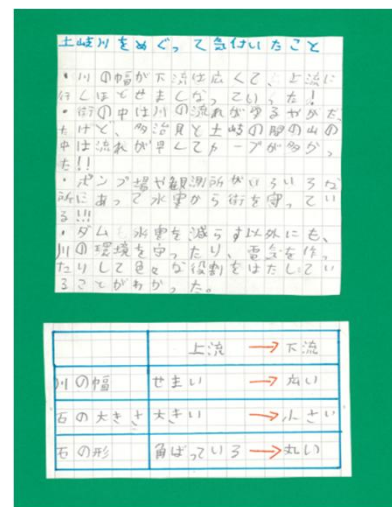 土岐川をめぐって気付いたこと
・川の幅が下流は広くて、上流に
行くほどせまくなっていった!
・街の中は川の流れがゆるやかだっ
たけど、多治見と土岐の間の山の
中は流れが早くてカーブが多かっ
た!!
・ポンプ場や観測所がいろいろな
所にあって水害から街を守ってい
る!!!
・ダム 水害を減らす以外にも、
川の環境を守ったり、電気を作っ
たりして色々な役割をはたしてい
ることがわかった。
上流 → 下流
川の幅 せまい → 広い
石の大きさ 大きい → 小さい
石の形 角ばっている → 丸い